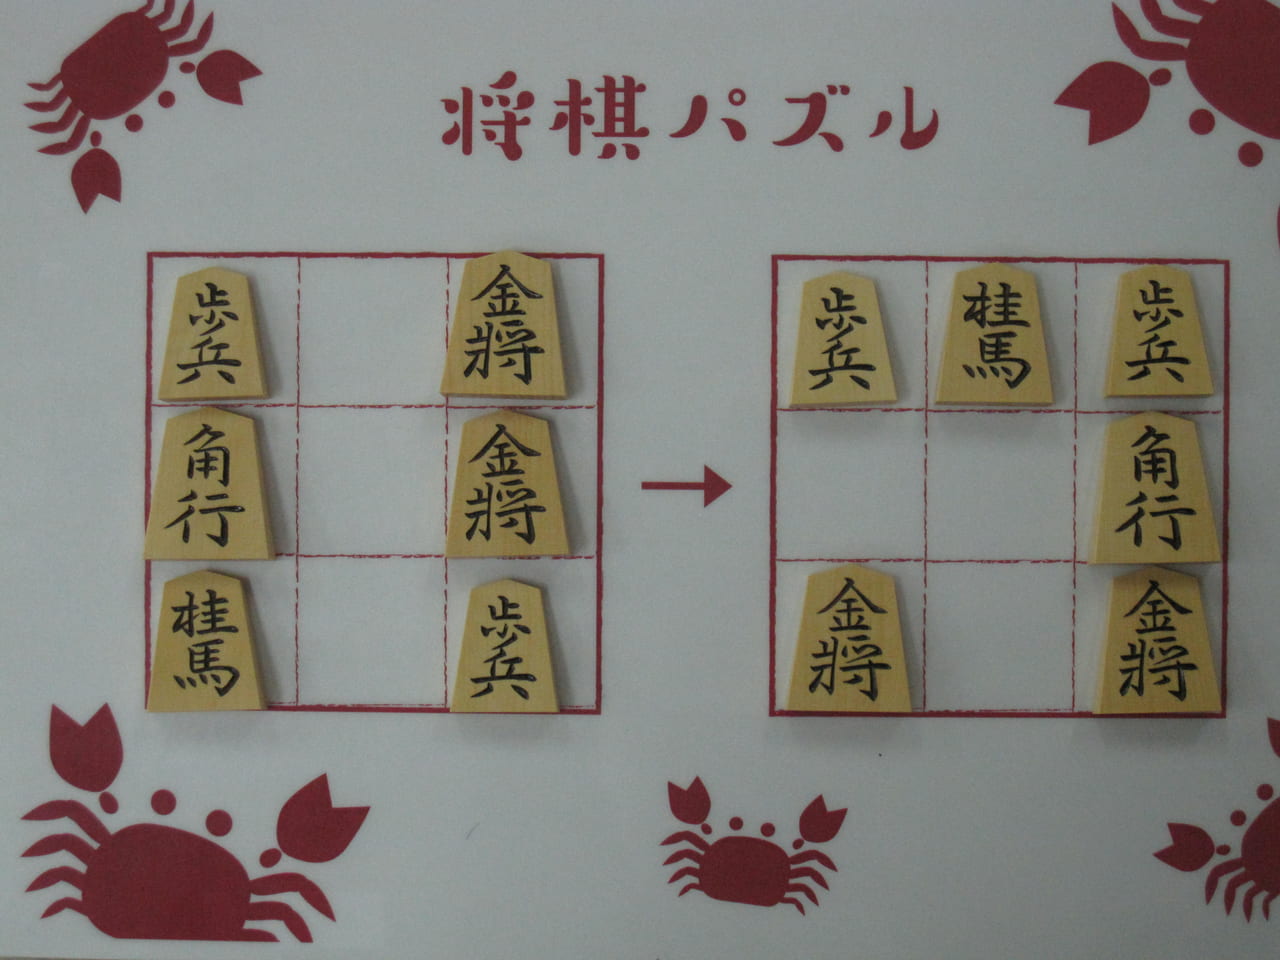 将棋パズル
歩兵 金將 歩兵 桂馬 歩兵
角行 金將 角行
桂馬 歩兵 金將 金將